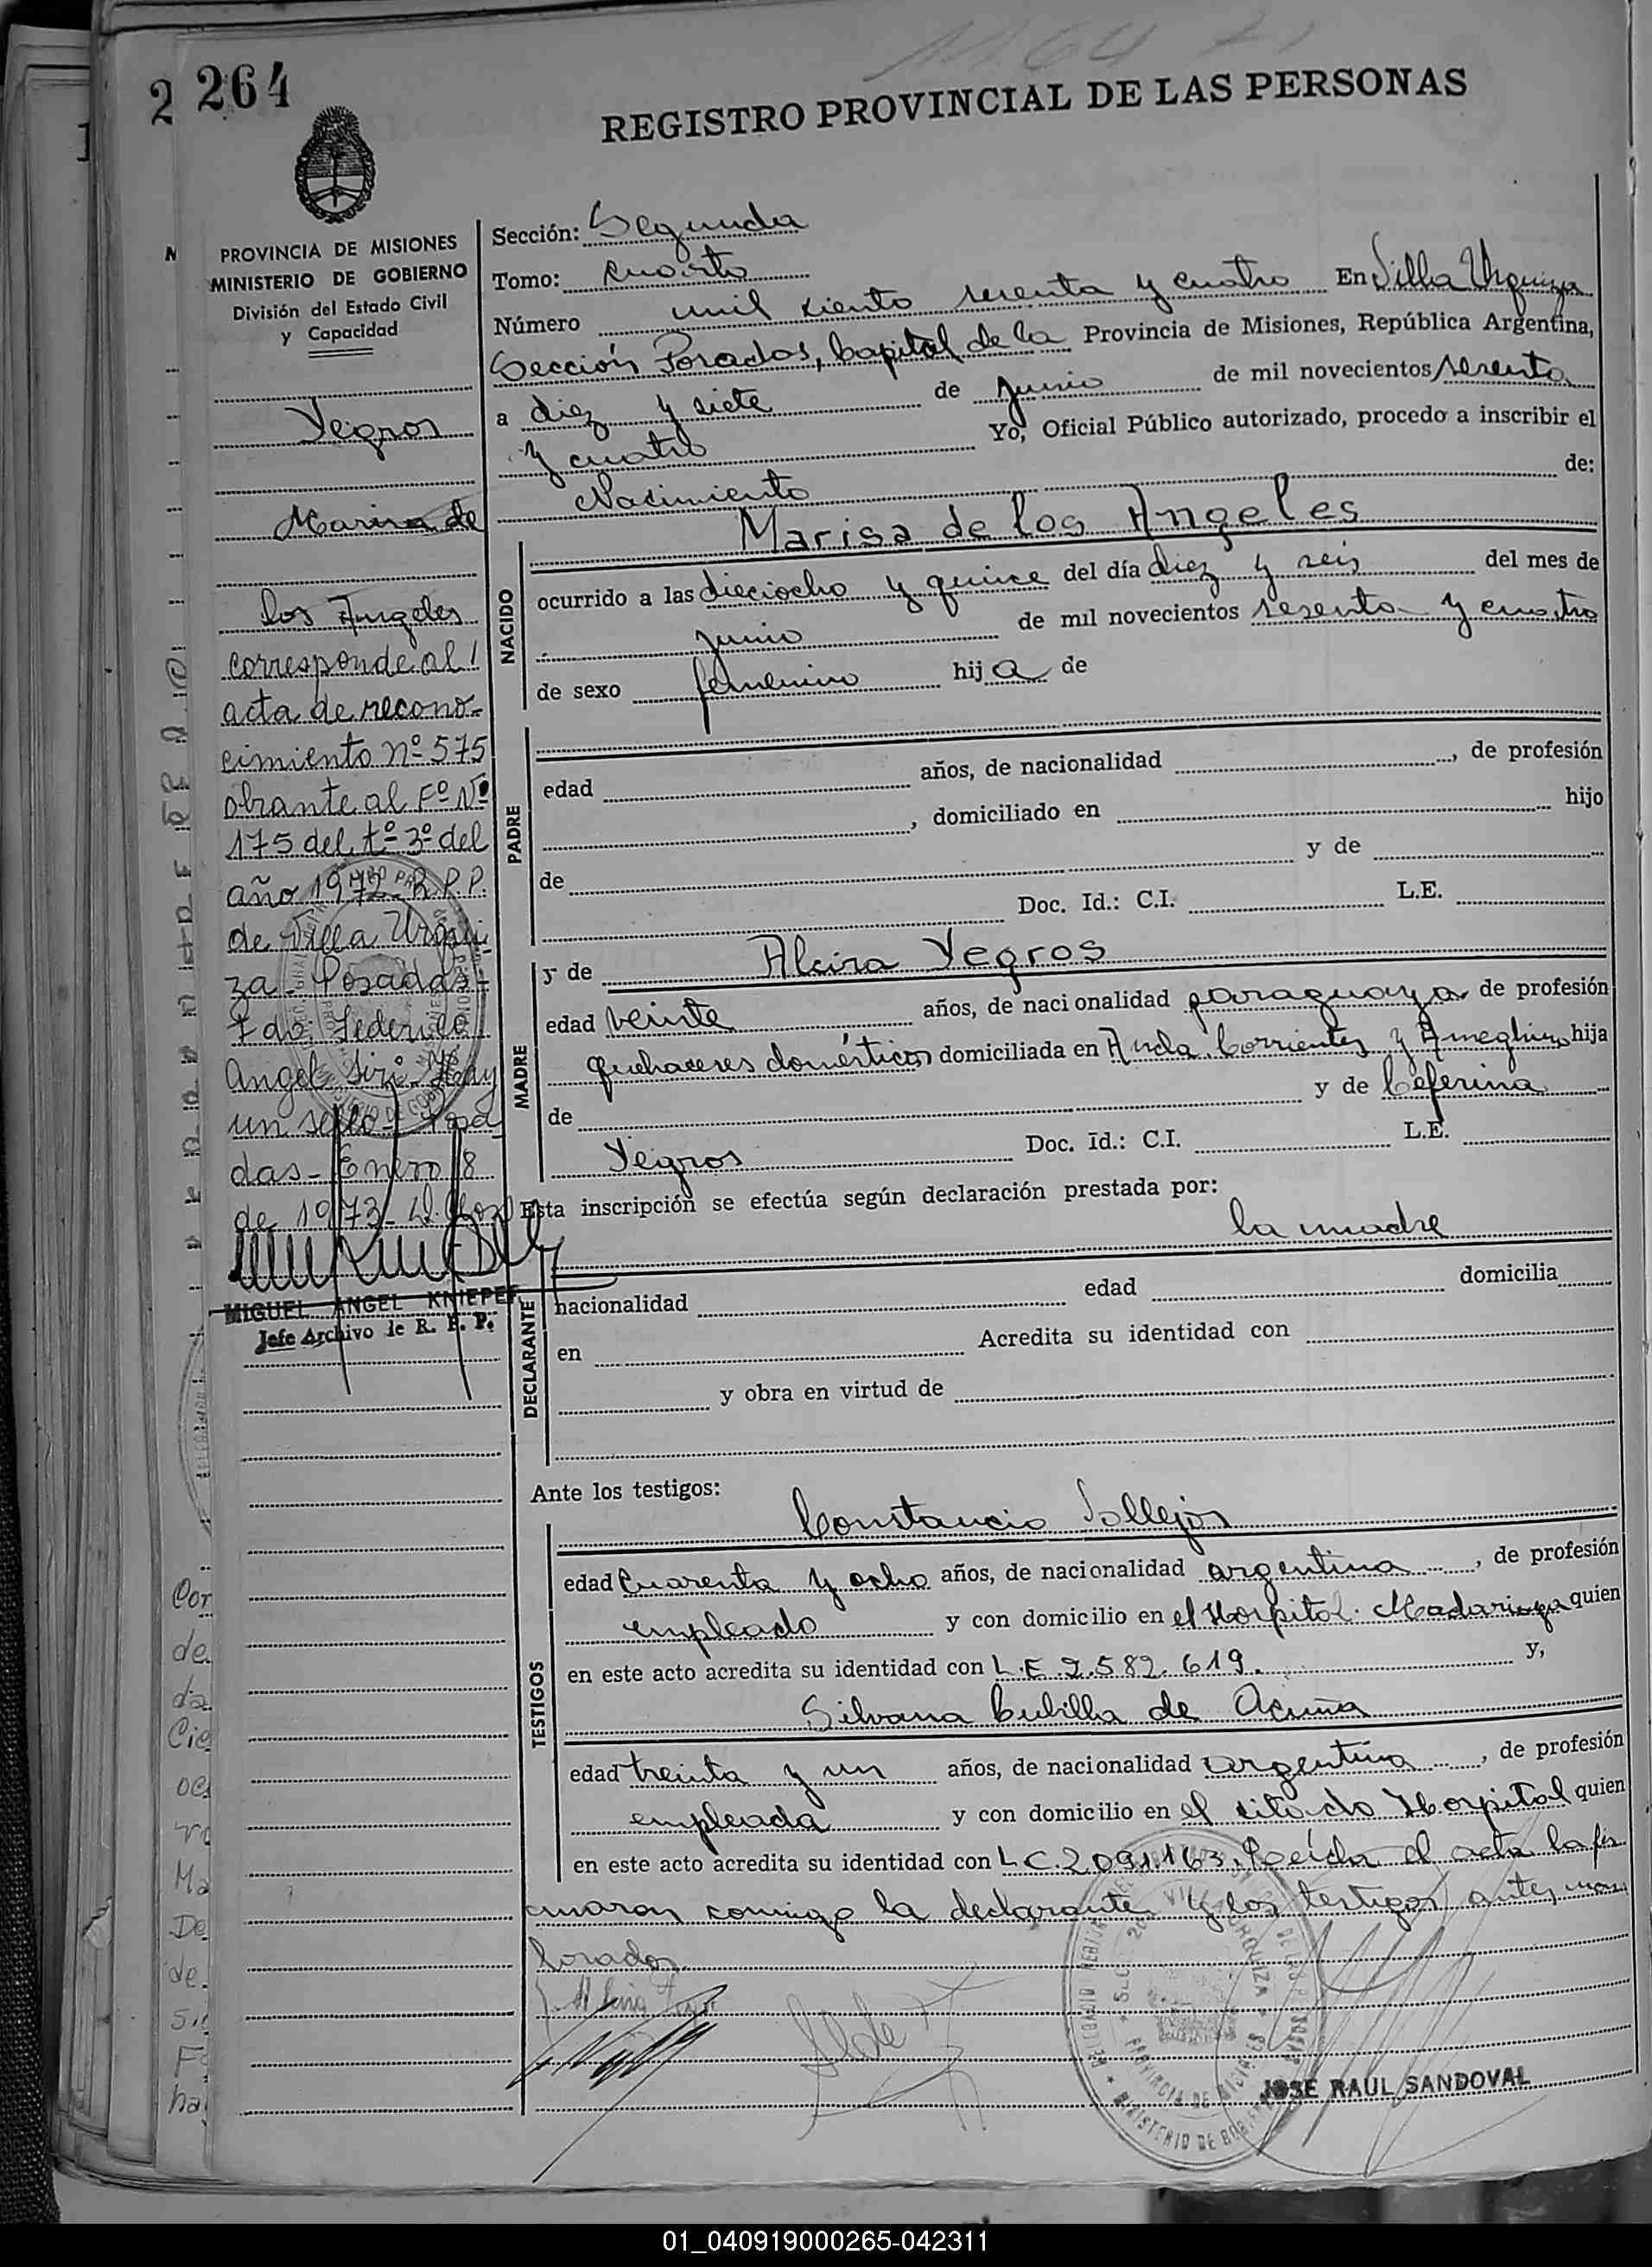 2 264
REGISTRO PROVINCIAL DE LAS PERSONAS
PROVINCIA DE MISIONES
MINISTERIO DE GOBIERNO
División del Estado Civil
y Capacidad
Yegros
Marisa de
los Angeles
corresponde al
acta de recono-
cimiento nº 575
obrante al Fº Nº
175 del tº 3º del
año 1972 - R.P.P.
de Villa Urqui
za - Posadas -
Fdo: Federico
Angel Siri - Hay
un sello - Posa
das - Enero 8
de 1973 -
MIGUEL ANGEL KNIEPEF
Jefe Archivo de R. P. P.
Sección: Segunda
Tomo: cuarto
Número mil ciento sesenta y cuatro En Villa Urquiza
Sección Posadas, Capital de la Provincia de Misiones, República Argentina,
a diez y siete de junio de mil novecientos sesenta
y cuatro Yo, Oficial Público autorizado, procedo a inscribir el
Nacimiento de:
NACIDO
Marisa de los Angeles
ocurrido a las dieciocho y quince del día diez y seis del mes de
junio de mil novecientos sesenta y cuatro
de sexo femenino hija de
PADRE
edad años, de nacionalidad , de profesión
, domiciliado en hijo
de y de
Doc. Id.: C.I. L.E.
MADRE
y de Alcira Yegros
edad veinte años, de nacionalidad paraguaya de profesión
quehaceres domésticos domiciliada en Avda. Corrientes y Ameghino hija
de y de Ceferina
Yegros Doc. Id.: C.I. L.E.
Esta inscripción se efectúa según declaración prestada por:
la madre
DECLARANTE
nacionalidad edad domicilia
en Acredita su identidad con
y obra en virtud de
Ante los testigos:
TESTIGOS
Constancio Vallejos
edad cuarenta y ocho años, de nacionalidad argentina , de profesión
empleado y con domicilio en el Hospital Madariaga quien
en este acto acredita su identidad con L.E 2.582.619. y,
Silvana Cubilla de Acuña
edad treinta y un años, de nacionalidad argentina , de profesión
empleada y con domicilio en el citado Hospital quien
en este acto acredita su identidad con L C. 2.091.163. Leída el acta la fir
maron conmigo la declarante y los testigos antes men
cionados
JOSE RAUL SANDOVAL
01_040919000265-042311